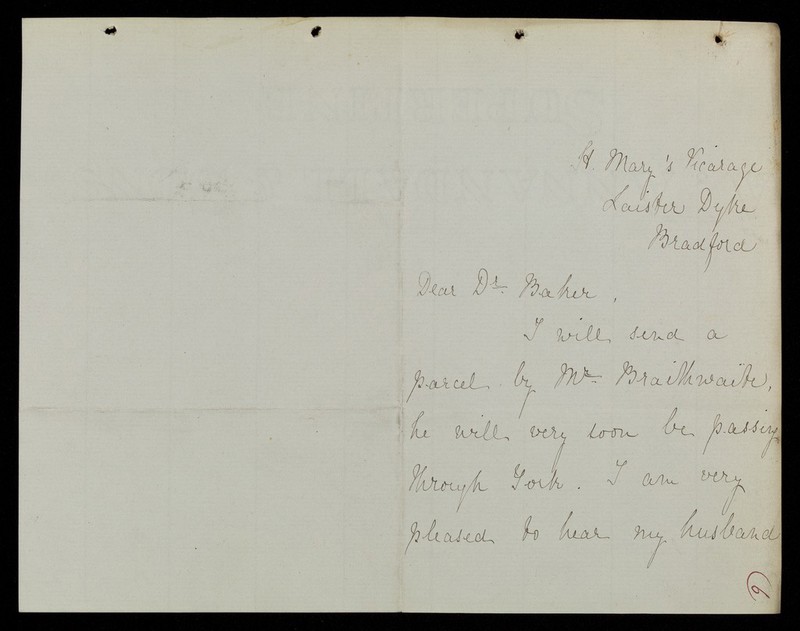 St. Mary's Vicarage
Laister Dyke
Bradford
Dear Dr. Baker,
I will send a
parcel by Mr. Braithwaite,
he will very soon be passing
through York. I am very
pleased to hear my husband
9